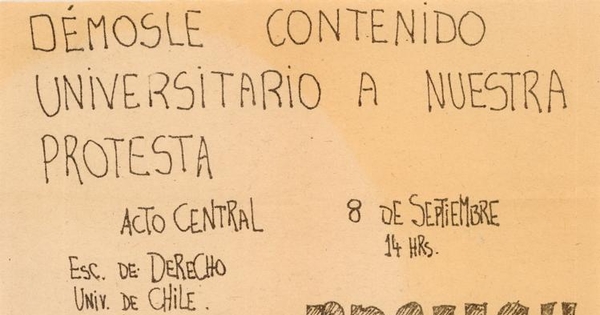 DÉMOSLE CONTENIDO
UNIVERSITARIO A NUESTRA
PROTESTA
ACTO CENTRAL 8 DE SEPTIEMBRE
14 HRS.
ESC. DE DERECHO
UNIV. DE CHILE.